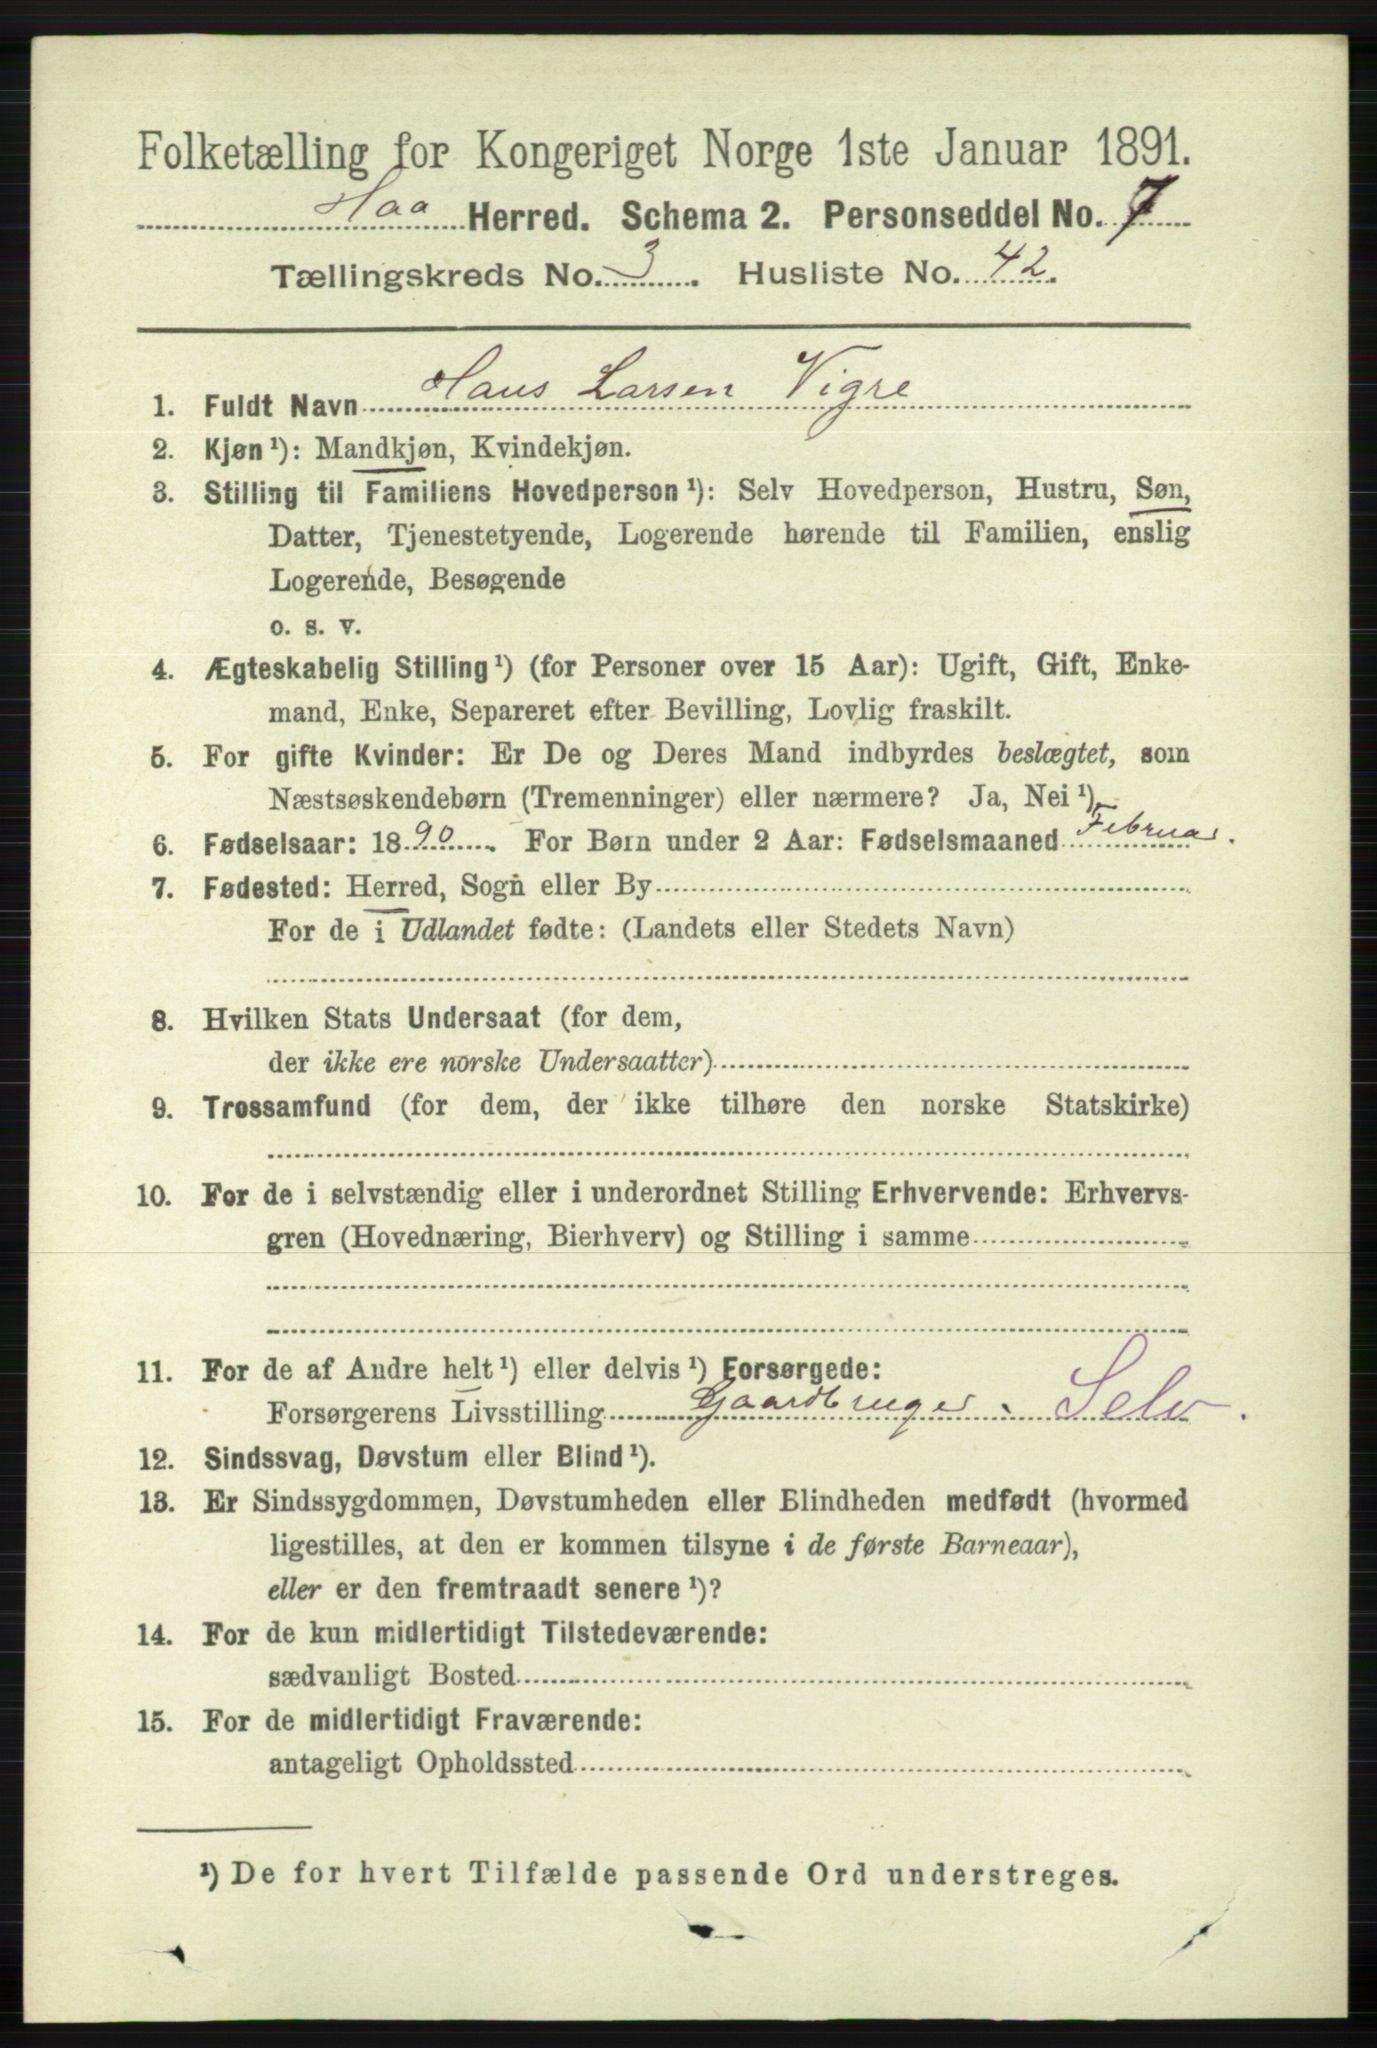 Folketælling for Kongeriget Norge 1ste Januar 1891.
Haa Herred. Schema 2. Personseddel No. 7
Tællingskreds No. 3. Husliste No. 42.
1. Fuldt Navn Hans Larsen Vigre
2. Kjøn¹): Mandkjøn, Kvindekjøn.
3. Stilling til Familiens Hovedperson¹): Selv Hovedperson, Hustru, Søn,
Datter, Tjenestetyende, Logerende hørende til Familien, enslig
Logerende, Besøgende
o. s. v.
4. Ægteskabelig Stilling¹) (for Personer over 15 Aar): Ugift, Gift, Enke-
mand, Enke, Separeret efter Bevilling, Lovlig fraskilt.
5. For gifte Kvinder: Er De og Deres Mand indbyrdes beslægtet, som
Næstsøskendebørn (Tremenninger) eller nærmere? Ja, Nei¹).
6. Fødselsaar: 1890. For Børn under 2 Aar: Fødselsmaaned Februar.
7. Fødested: Herred, Sogn eller By
For de i Udlandet fødte: (Landets eller Stedets Navn)
8. Hvilken Stats Undersaat (for dem,
der ikke ere norske Undersaatter)
9. Trossamfund (for dem, der ikke tilhøre den norske Statskirke)
10. For de i selvstændig eller i underordnet Stilling Erhvervende: Erhvervs-
gren (Hovednæring, Bierhverv) og Stilling i samme
11. For de af Andre helt¹) eller delvis¹) Forsørgede:
Forsørgerens Livsstilling Gaardbruger. Selv.
12. Sindssvag, Døvstum eller Blind¹).
13. Er Sindssygdommen, Døvstumheden eller Blindheden medfødt (hvormed
ligestilles, at den er kommen tilsyne i de første Barneaar),
eller er den fremtraadt senere¹)?
14. For de kun midlertidigt Tilstedeværende:
sædvanligt Bosted
15. For de midlertidigt Fraværende:
antageligt Opholdssted
¹) De for hvert Tilfælde passende Ord understreges.